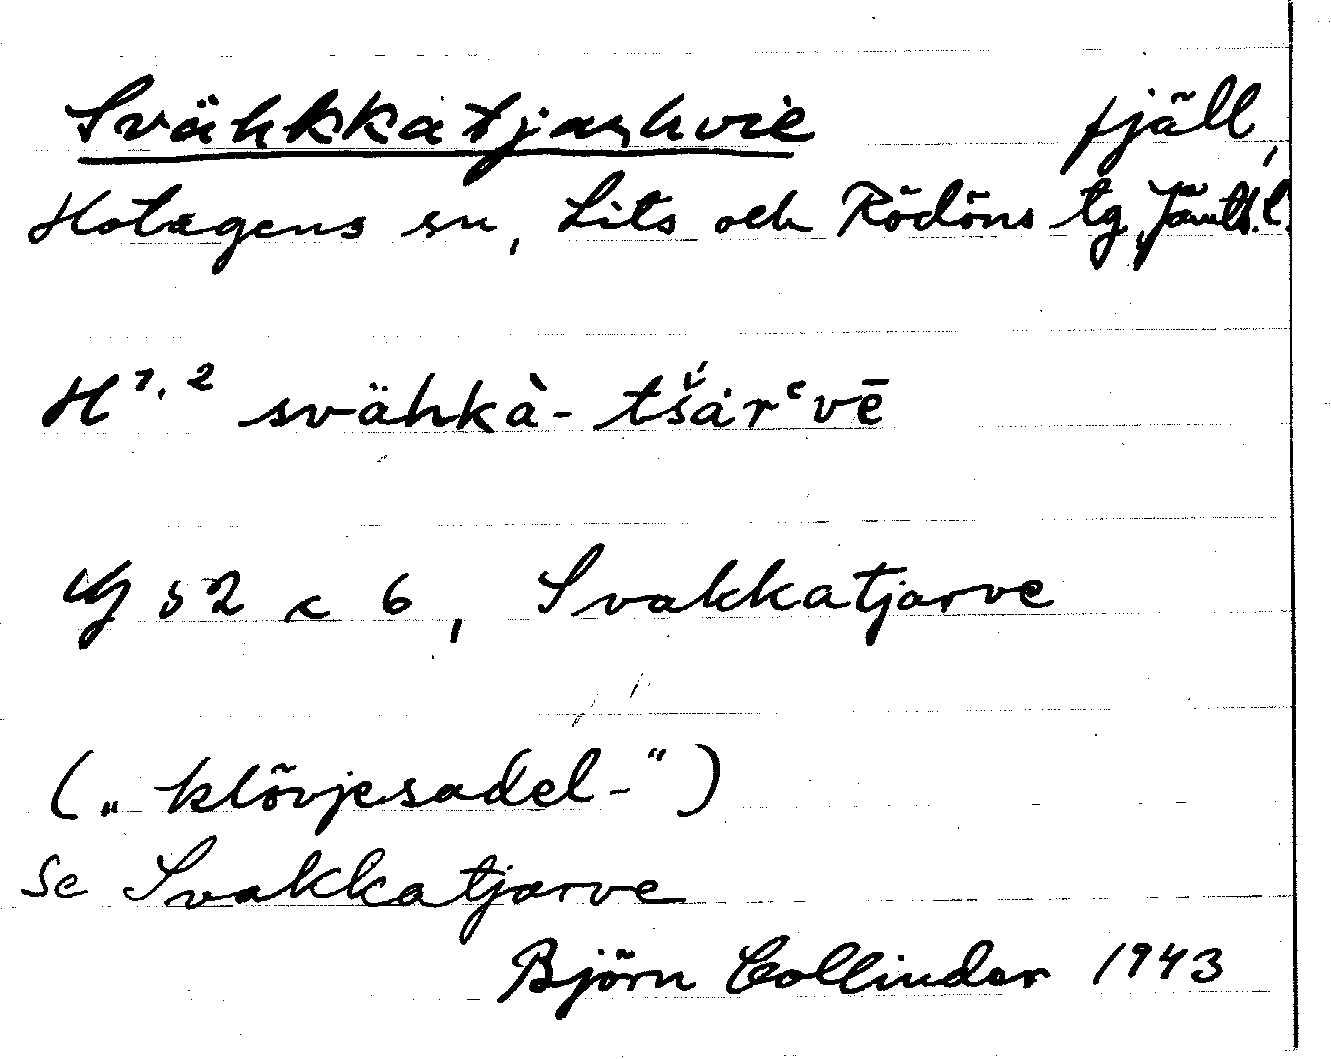 Svähkkatjarhvie fjäll,
Hotagens sn, Lits och Rödöns tg, Jämtl. l.
H 1, 2 svähkà- tšår‛vē
G 52 c 6, Svakkatjarve
(„ klövjesadel- “)
Se Svakkatjarve
Björn Collinder 1943